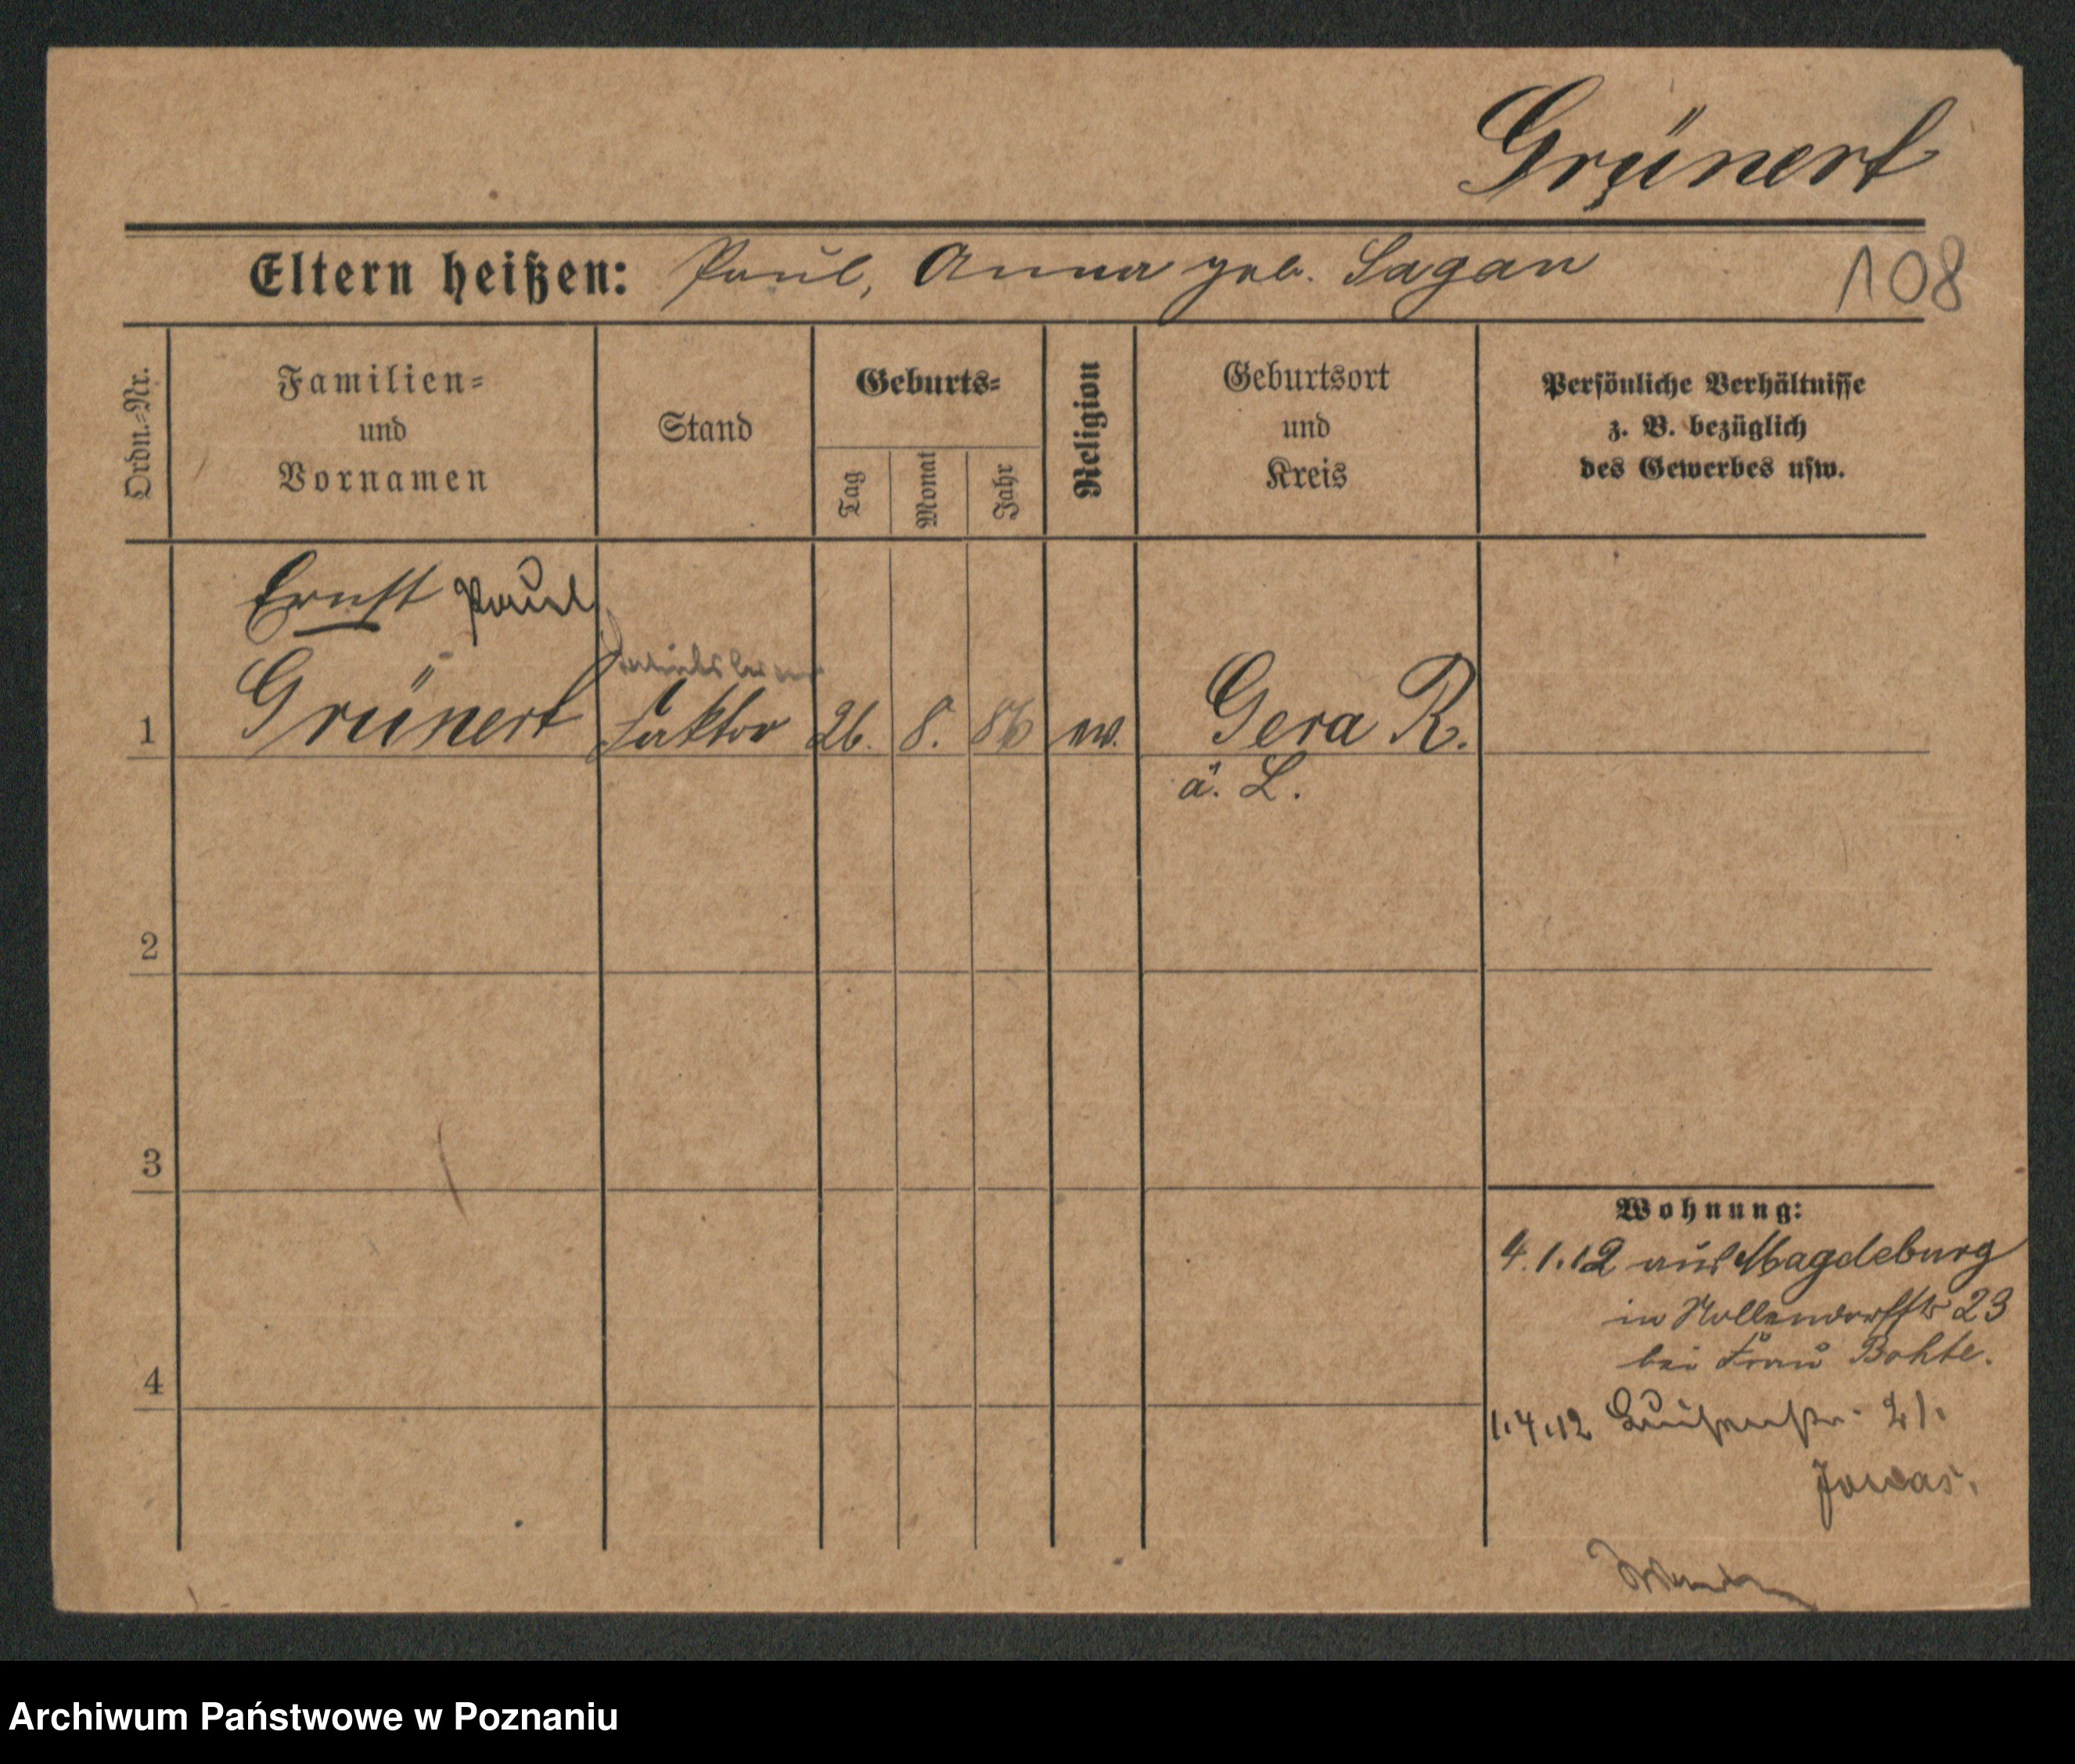 Grünert
Eltern heißen: Paul, Anna geb. Sagan
108
Ordn.=Nr.
Familien=
und
Vornamen
Stand
Geburts=
Tag
Monat
Jahr
Religion
Geburtsort
und
Kreis
Persönliche Verhältnisse
z. B. bezüglich
des Gewerbes usw.
Ernst Paul
1 Grünert Faktor 26. 8. 86 ev. Gera R.
ä. L.
2
3
4
Wohnung:
4.1.12 aus Magdeburg
in Nollendorfstr 23
bei Frau Bohte.
1.4.12 Luisenstr. 21.
Archiwum Państwowe w Poznaniu